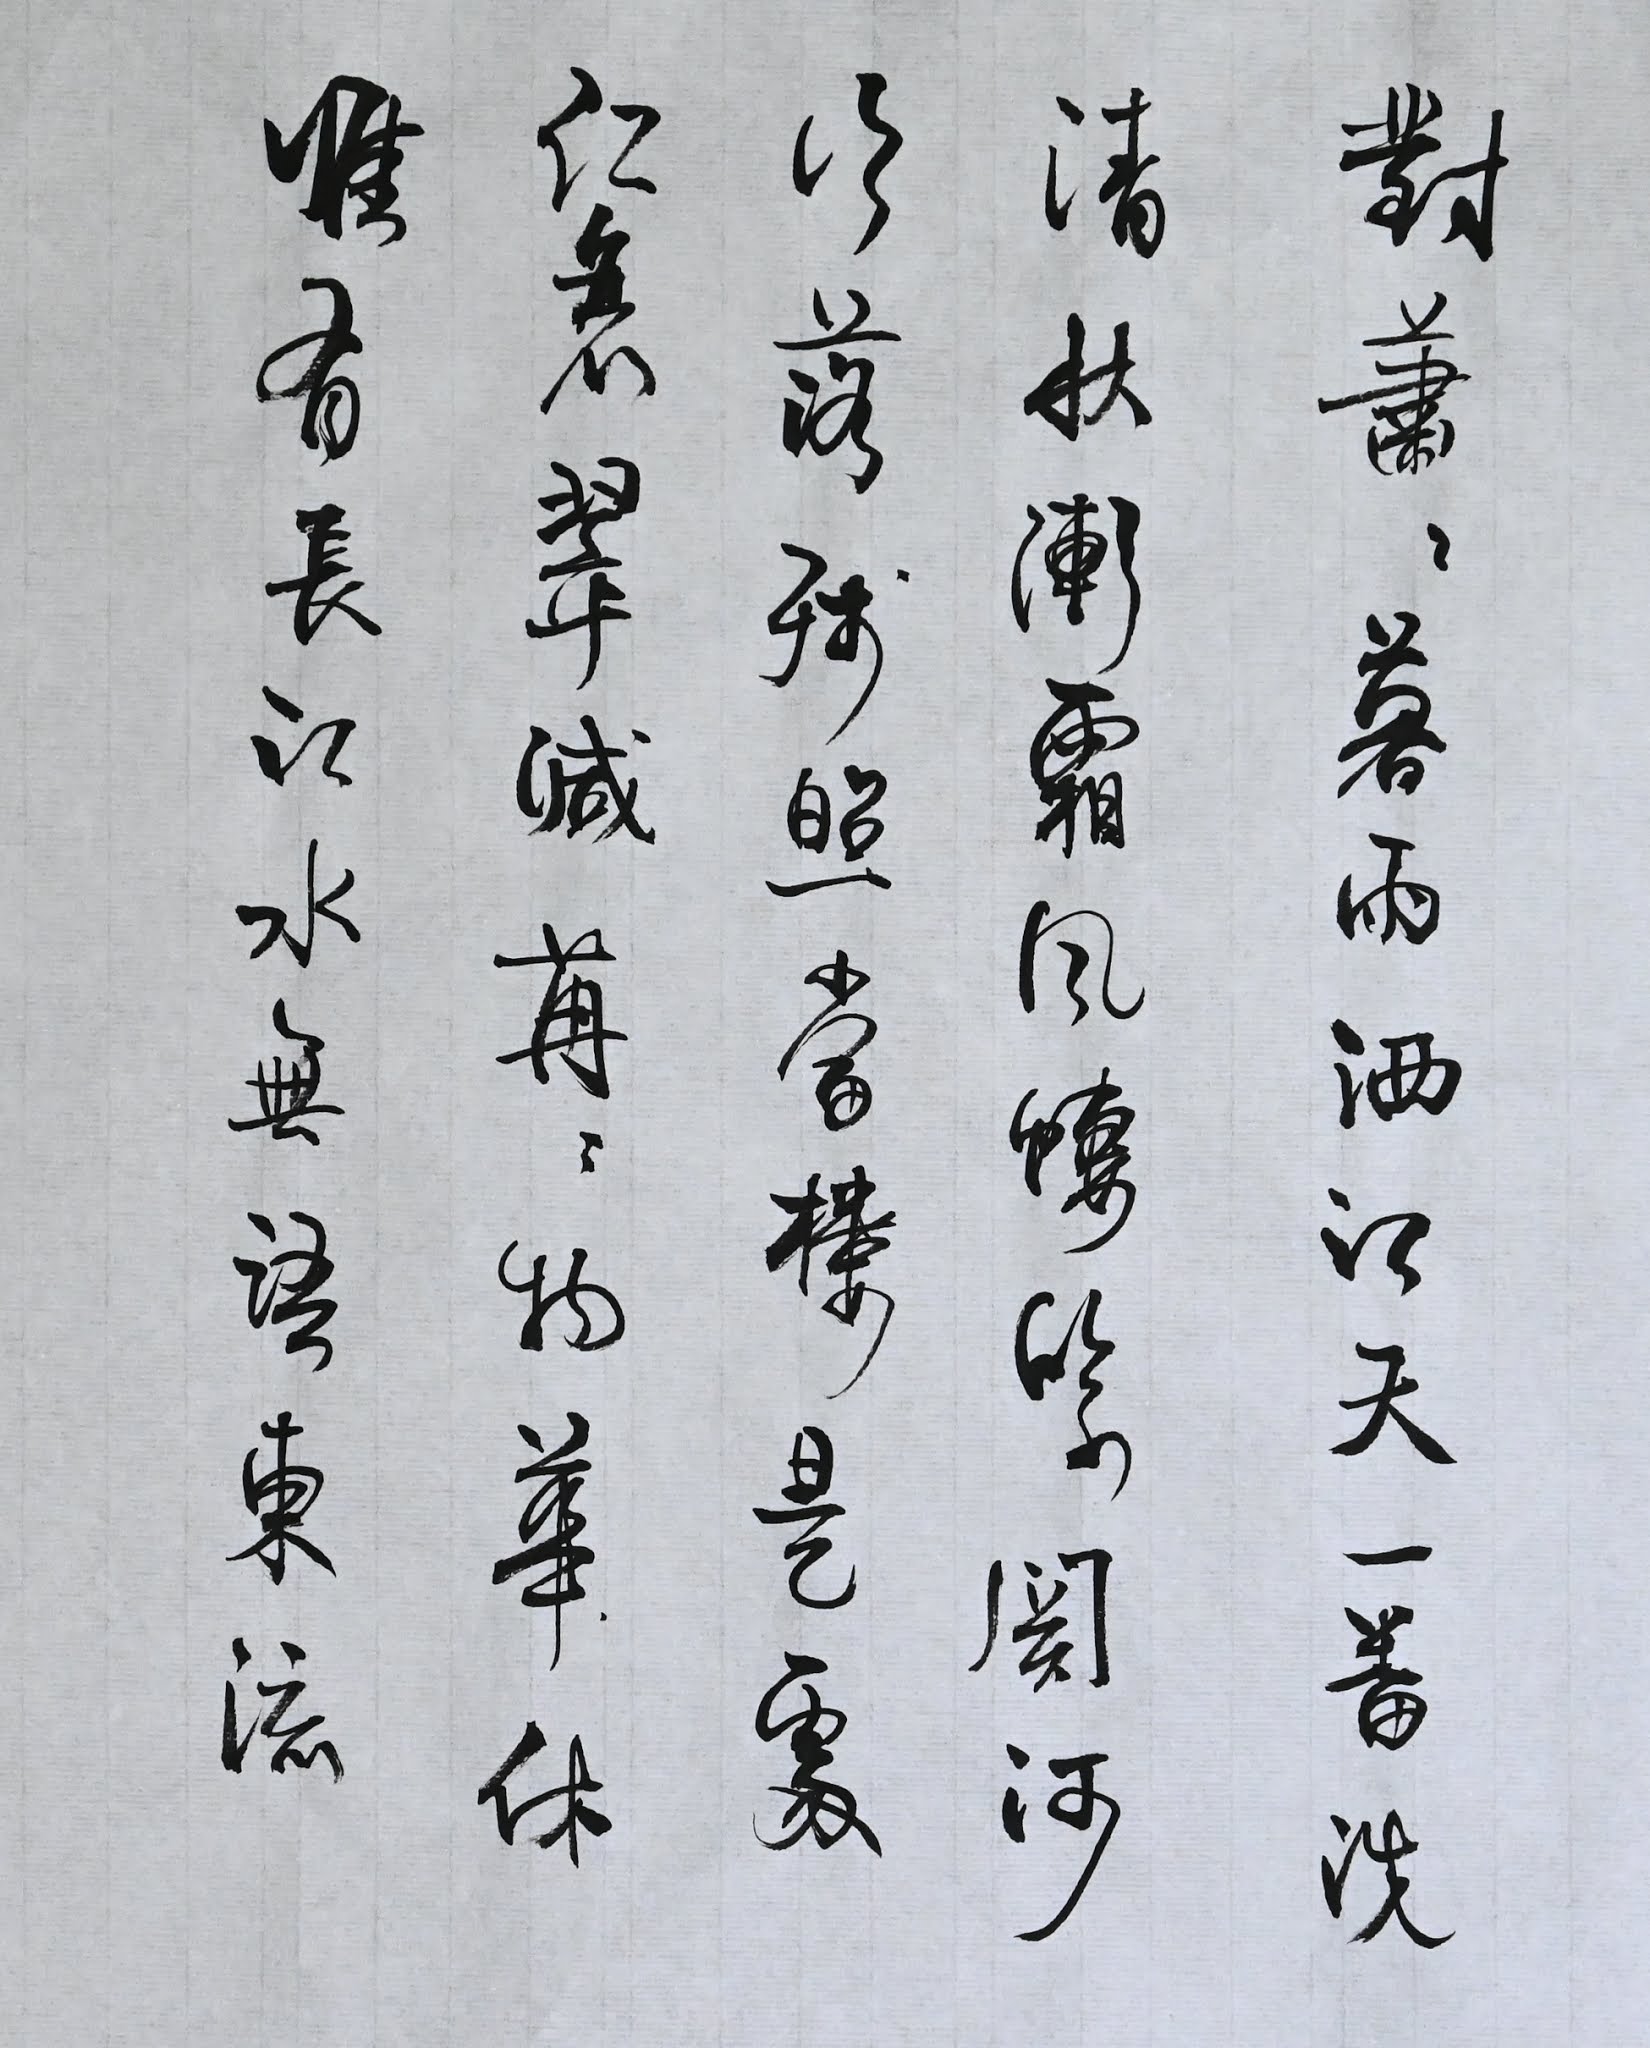 對蕭〻暮雨洒江天一番洗
清秋漸霜風悽緊關河
冷落殘照當樓是處
紅衰翠減苒〻物華休
惟有長江水無語東流